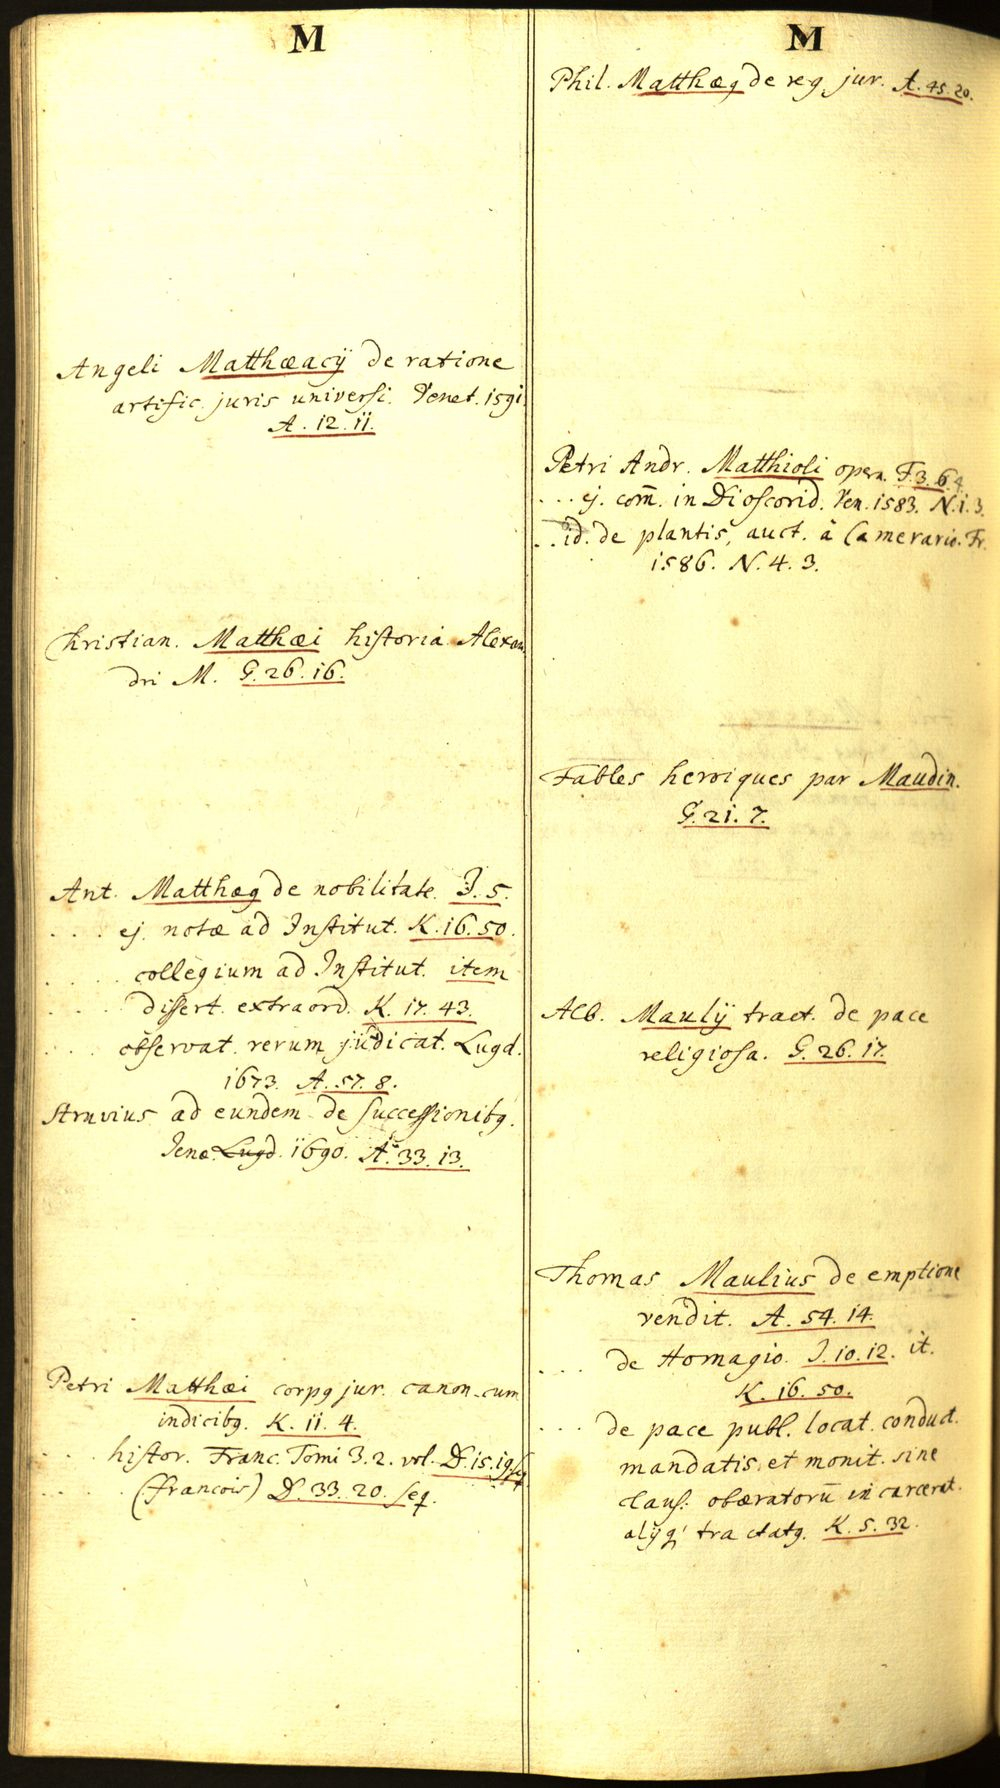 M
Angeli Matthæacÿ de ratione
artific. juris universi. Venet. 1591.
A. 12. 11.
Christian. Matthæi historia Alexan
dri M. G. 26. 16.
Ant. Matthæq de nobilitate. J. 5.
. . . . ej. notæ ad Institut. K. 16. 50.
. . . . collegium ad Institut. item
. . . . dissert. extraord. K. 17. 43.
. . . . observat. rerum judicat. Lugd.
1673. A. 57. 8.
Struvius ad eundem de successionibq.
Jenæ. Lugd. 1690. A. 33. 13.
Petri Matthæi corpq jur. canon. cum
indicibq. K. 11. 4.
. . . . histor. Franc. Tomi 3. 2. vol. D. 15. 19. seq
. . . . (francois) D. 33. 20. seq.
M
Phil. Matthæq de reg. jur. A. 45. 20.
Petri Andr. Matthioli opera. F. 3. 6. 4
. . . ej. com̄. in Dioscorid. Ven. 1583. N. 1. 3.
. . id. de plantis, auct. à Camerario. Fr.
1586. N. 4. 3.
Fables heroiques par Maudin.
G. 21. 7.
Alb. Maulÿ tract. de pace
religiosa. G. 26. 17.
Thomas Maulius de emptione
vendit. A. 54. 14.
. . . de Homagio. J. 10. 12. it.
K. 16. 50.
. . . . de pace publ. locat. conduct.
mandatis et monit. sine
claus. obæratorū incarcerat.
alÿq; tractatq. K. 5. 32.